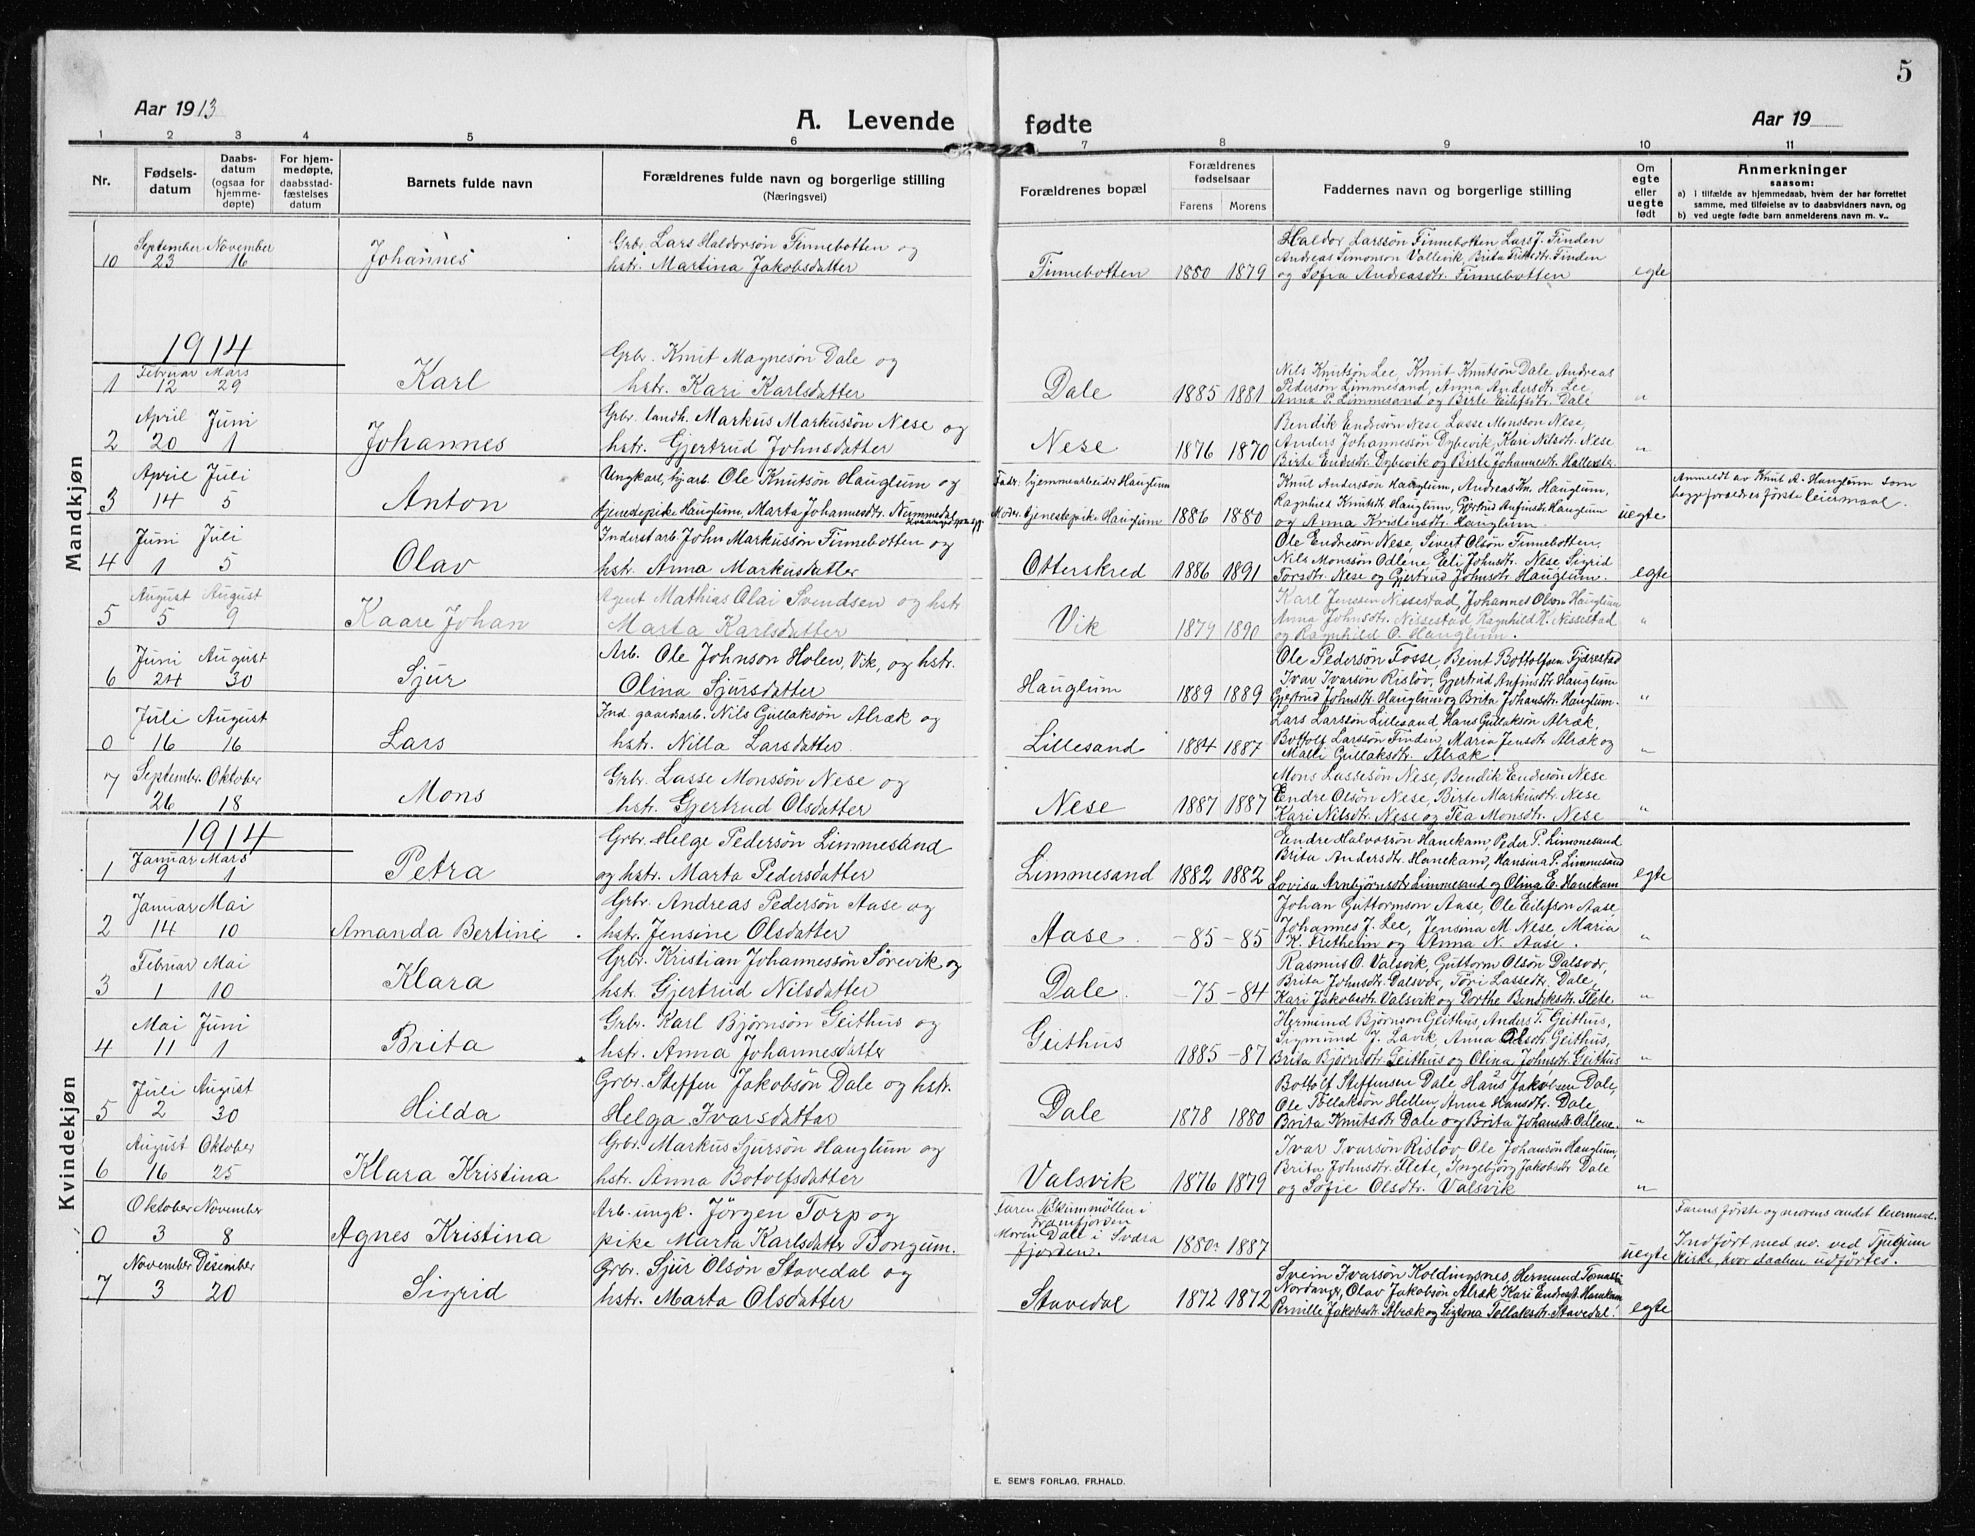 5
Aar 1913
A. Levende fødte
Aar 19
1 2 3 4 5 6 7 8 9 10 11
Nr.
Fødsels-
datum
Daabs-
datum
(ogsaa for
hjemme-
døpte)
For hjem-
medøpte,
daabsstad-
fæstelses
datum
Barnets fulde navn
Forældrenes fulde navn og borgerlige stilling
(Næringsvei)
Forældrenes bopæl
Forældrenes
fødselsaar
Farens Morens
Faddernes navn og borgerlige stilling
Om
egte
eller
uegte
født
Anmerkninger
saasom:
a) i tilfælde av hjemmedaab, hvem der har forrettet
samme, med tilføielse av to daabsvidners navn, og
b) ved uegte fødte barn anmelderens navn m. v..
Mandkjøn
10
September November
23 16
Johannes
Grbr. Lars Haldorsøn Finnebotten og
hstr. Martina Jakobsdatter
Finnebotten
1880 1879
Haldor Larssøn Finnebotten Lars J. Finden
Andreas Simonson Vallevik, Brita Eriksdtr. Finden
og Sofia Andreasdtr. Finnebotten
egte
1914
1
Februar Mars
12 29
Karl
Grbr. Knut Magnesøn Dale og
hstr. Kari Karlsdatter
Dale
1885 1881
Nils Knutsøn Lee, Knut Knutsøn Dale Andreas
Pedersøn Limmesand, Anna Andersdtr. Lee,
Anna P. Limmesand og Birte Eilifsdtr. Dale
"
2
April Juni
20 1
Johannes
Grbr. landh. Markus Markussøn Nese og
hstr. Gjertrud Johnsdatter
Nese
1876 1870
Bendik Endresøn Nese Lasse Monsson Nese,
Anders Johannessøn Dybevik, Kari Nilsdtr. Nese
Birte Endresdtr. Dybevik og Birte Johannesdtr.
"
3
April Juli
14 5
Anton
Ungkarl, hj.arb. Ole Knutsøn Hauglum og
tjenestepike Hauglum, Marta Johannesdtr. Nummedal
Fadr. hjemmearbeider Hauglum
Moder. tjenestepike Hauglum
1886 1880
Knut Anderssøn Hauglum, Andreas Kn. Hauglum,
Ragnhild Knutsdtr. Hauglum, Gjertrud Anfinsdtr. Hauglum
og Anna Kristensdtr. Hauglum.
uegte
Anmeldt av Knut A. Hauglum som
beggeforældres første leiermaal.
4
Juni Juli
1 5
Olav
Inderst arb. John Markussøn Finnebotten og
hstr. Anna Markusdatter
Otterskred
1886 1891
Ole Endresøn Nese, Sivert Olsøn Finnebotten,
Nils Monssøn Odlene, Eli Johnsdtr. Nese Sigrid
Torsdtr. Nese og Gjertrud Johnsdtr. Hauglum.
egte
5
August August
5 9
Kaare Johan
Agent Mathias Olai Svendsen og hstr
Marta Karlsdatter
Vik
1879 1890
Karl Jenssen Nissestad, Johannes Olson Hauglum
Anna Johnsdtr. Nissestad Ragnhild K. Nissestad
og Ragnhild O. Hauglum.
"
6
Juni August
24 30
Sjur
Arb. Ole Johnson Holen, Vik, og hstr.
Olina Sjursdatter
Hauglum
1889 1889
Ole Pedersøn Fosse, Beint Bottolfsen Fjærestad
Ivar Ivarson Risløv, Gjertrud Anfinsdtr. Hauglum
Gjertrud Johnsdtr. Hauglum og Brita Johansdtr. Hauglum.
"
0
Juli August
16 16
Lars
Ind. gaardsarb. Nils Gullaksøn Alræk og
hstr. Nilla Larsdatter.
Lillesand
1884 1887
Lars Larssøn Lillesand, Hans Gullaksøn Alræk,
Bottolf Larssøn Finden, Maria Jensdtr. Alræk og
Malli Gullaksdtr. Alræk.
"
7
September Oktober
26 18
Mons
Grbr. Lasse Monssøn Nese og
hstr. Gjertrud Olsdatter
Nese
1887 1887
Mons Lassesøn Nese, Bendik Endresøn Nese
Endre Olsøn Nese, Birte Markusdtr. Nese
Kari Nilsdtr. Nese og Tea Monsdtr. Nese
"
Kvindekjøn
1914
1
Januar Mars
9 1
Petra
Grbr. Helge Pedersøn Limmesand
og hstr. Marta Pedersdatter
Limmesand
1882 1882
Eendre Halvorsøn Hanekam, Peder P. Limmesand
Brita Andersdtr. Hanekam, Hansina P. Limmesand
Lovisa Arnbjørnsdtr Limmesand og Olina E. Hanekam
egte
2
Januar Mai
14 10
Amanda Bertine
Grbr. Andreas Pedersøn Aase og
hstr. Jensine Olsdatter
Aase.
-85 -85
Johan Guttormson Aase, Ole Eilefson Aase,
Johannes J. Lee, Jensina M. Nese, Maria
K. Fretheim og Anna N. Aase.
"
3
Februar Mai
1 10
Klara
Grbr. Kristian Johannessøn Sørevik og
hstr. Gjertrud Nilsdatter
Dale.
-75 -84
Rasmus O. Valsvik, Guttorm Olsøn Dalsvær,
Brita Johnsdtr. Dalsvær, Tøri Lassedtr. Dale,
Kari Jakobsdtr. Valsvik og Dorthe Bendiksdtr. Flete.
"
4
Mai Juni
11 1
Brita
Grbr. Karl Bjørnsøn Geithus og
hstr. Anna Johannesdatter
Geithus
1885 -87
Hermund Bjørnson Geithus, Anders T. Geithus,
Sigmund J. Lavik, Anna Olsdtr Geithus,
Brita Bjørnsdtr. Geithus og Olina Johnsdtr. Geithus
"
5
Juli August
2 30
Hilda
Grbr. Steffen Jakobsøn Dale og hstr.
Helga Ivarsdatter
Dale
1878 1880
Bottolf Steffensen Dale, Hans Jakobsen Dale,
Ole Tollaksøn Hellen, Anna Hansdtr. Dale,
Brita Knutsdtr. Dale og Brita Johansdtr. Odlene.
"
6
August Oktober
16 25
Klara Kristina
Grbr. Markus Sjursøn Hauglum og
hstr. Anna Botolfsdatter
Valsvik
1876 1879
Ivar Ivarsøn Risløv Ole Johansøn Hauglum,
Brita Johnsdtr. Flete, Ingebjørg Jakobsdtr Dale
og Sofie Olsdtr. Valsvik
"
0
Oktober November
3 8
Agnes Kristina
Arb. ungk. Jörgen Torp og
pike Marta Karlsdatter Bongum.
Faren Skimmöllen i
Framfjorden
Moren Dale i Sværa
fjorden.
1880 1887
uegte
Farens første og morens andet leiermaal.
Indført med no. ved Tjugum
kirke, hvor daaben utførtes.
7
November Desember
3 20
Sigrid
Grbr. Sjur Olsøn Stavedal og
hstr. Marta Olsdatter
Stavedal
1872 1872
Svein Ivarsøn Koldingsnes, Hermund Tomassøn
Nordanger, Olav Jakobsøn Alræk Kari Endresdtr. Hanekam
Pernille Jakobsdtr Alræk og Tollaksdtr. Stavedal.
egte
E. SEM'S FORLAG, FR.HALD.